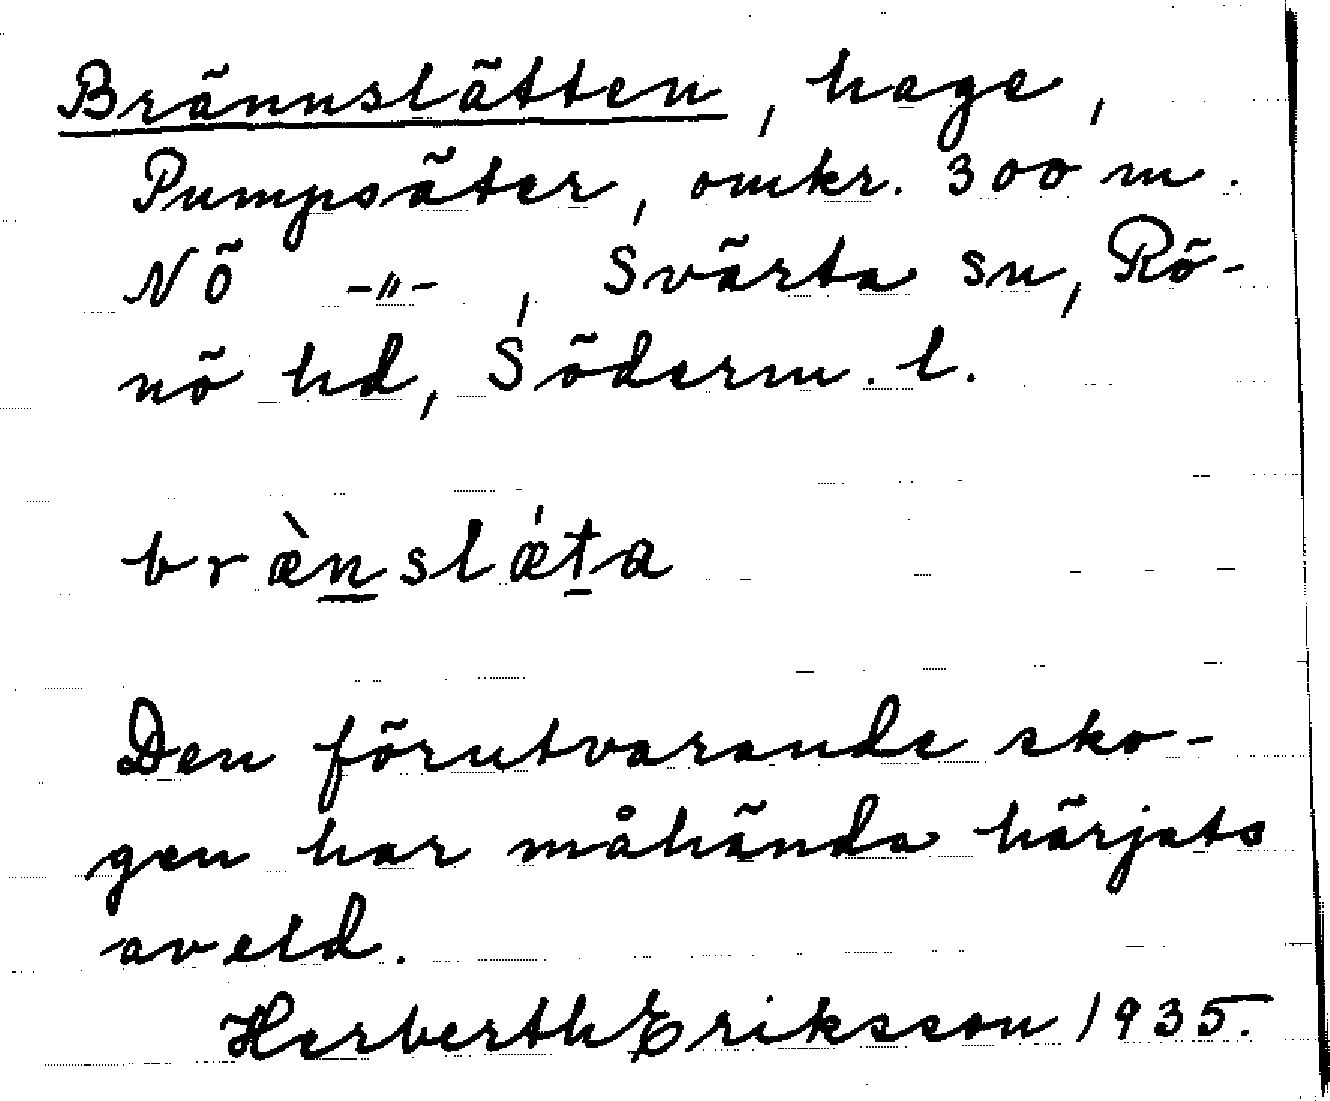 Brännslätten, hage,
Pumpsäter, omkr. 300 m.
NÖ -"- , Svärta sn, Rö-
nö hd, Söderm. l.
bræ̀n̲slǽt̲a
Den förutvarande sko-
gen har måhända härjats
av eld.
Herberth Eriksson 1935.